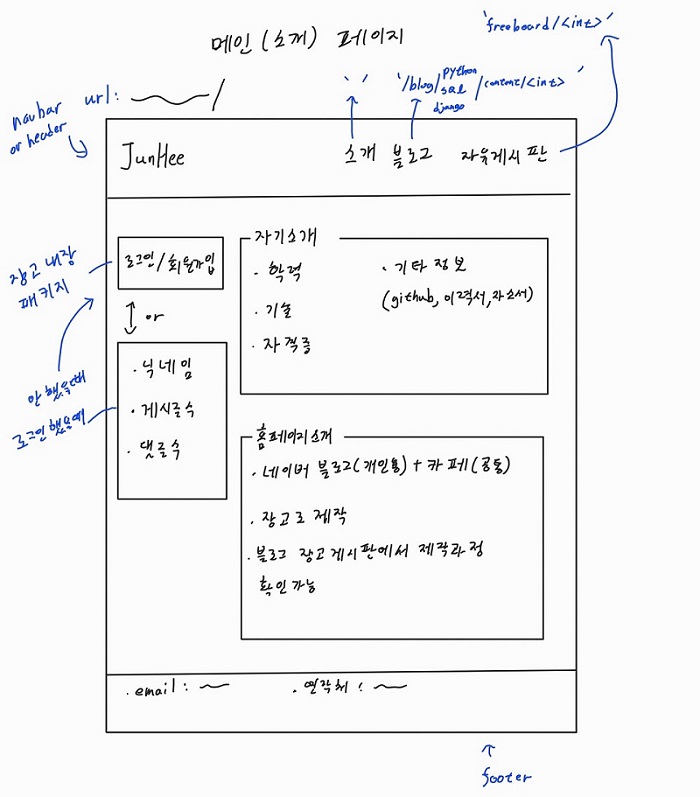 메인 (소개) 페이지
'freeboard/<int>'
url: /
' '
'/blog/python sql django/content/<int> '
navbar
or header
JunHee
소개 블로그 자유게시판
장고 내장
패키지
로그인/회원가입
or
안 했을때
로그인 했을때
· 닉네임
· 게시글수
· 댓글수
자기소개
· 학력
· 기술
· 자격증
· 기타 정보
(github, 이력서, 자소서)
홈페이지소개
· 네이버 블로그(개인용) + 카페(공통)
· 장고로 제작
· 블로그 장고게시판에서 제작과정
확인가능
· email :
· 연락처 :
footer